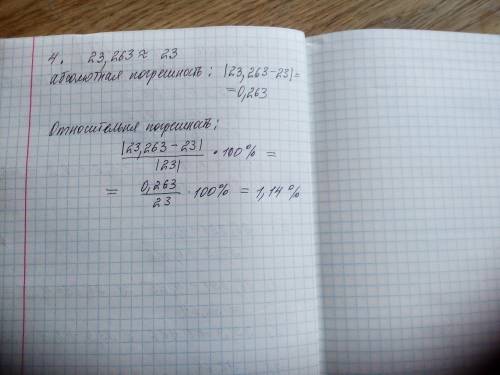 4. 23,263 ≈ 23
абсолютная погрешность: |23,263-23|=
=0,263
Относительная погрешность:
|23,263-23| / |23| · 100% =
= 0,263 / 23 · 100% = 1,14%